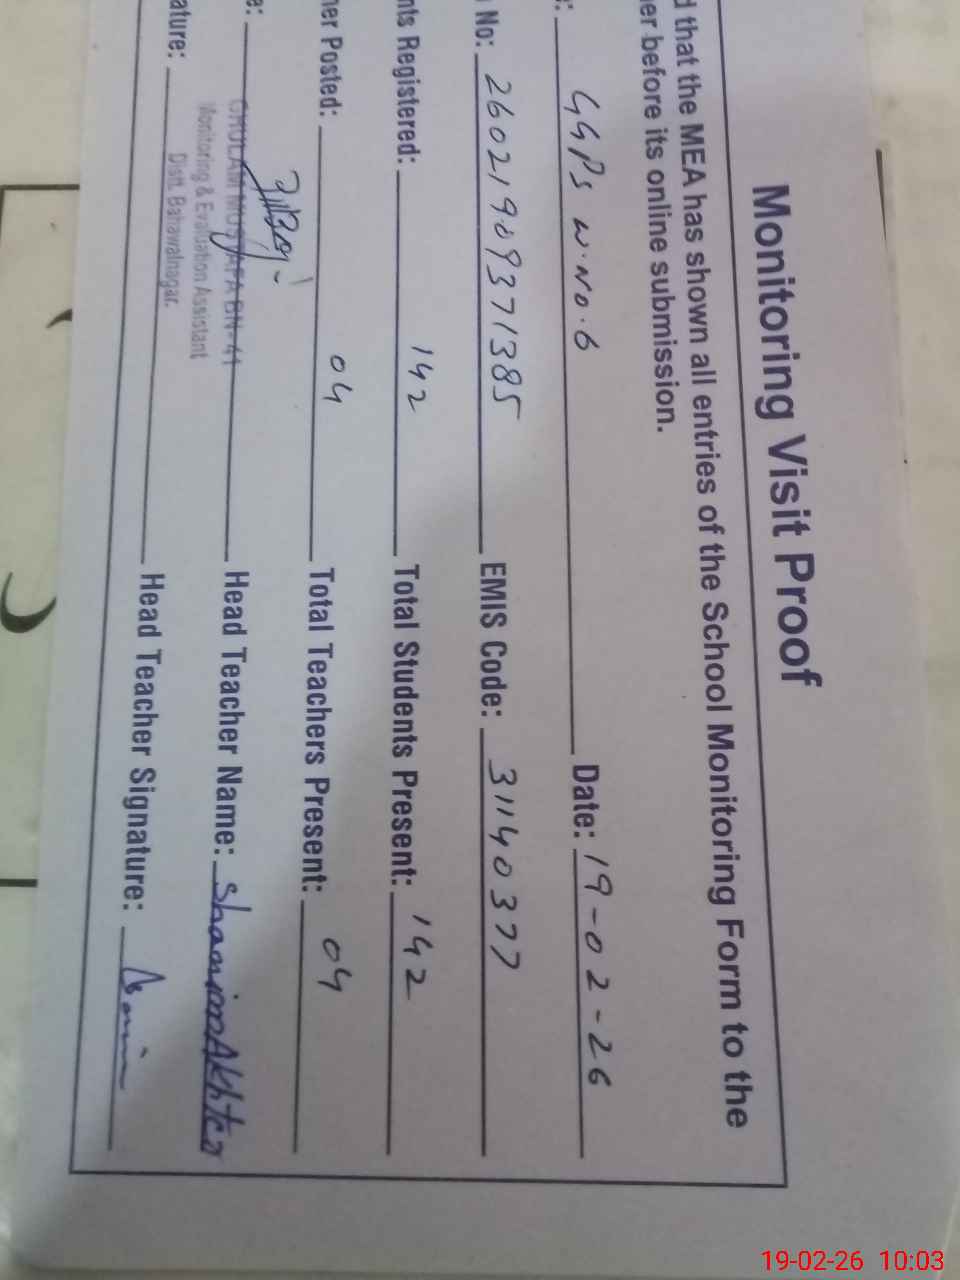 Monitoring Visit Proof
d that the MEA has shown all entries of the School Monitoring Form to the
er before its online submission.
: GGPS W.No.6 Date: 19-02-26
No: 26021909371385 EMIS Code: 31140377
nts Registered: 142 Total Students Present: 142
her Posted: 04 Total Teachers Present: 04
e: GHULAM MUSTAFA BN-41 Head Teacher Name: Shamim Akhter
Monitoring & Evaluation Assistant
Distt. Bahawalnagar.
ature: Head Teacher Signature:
19-02-26 10:03